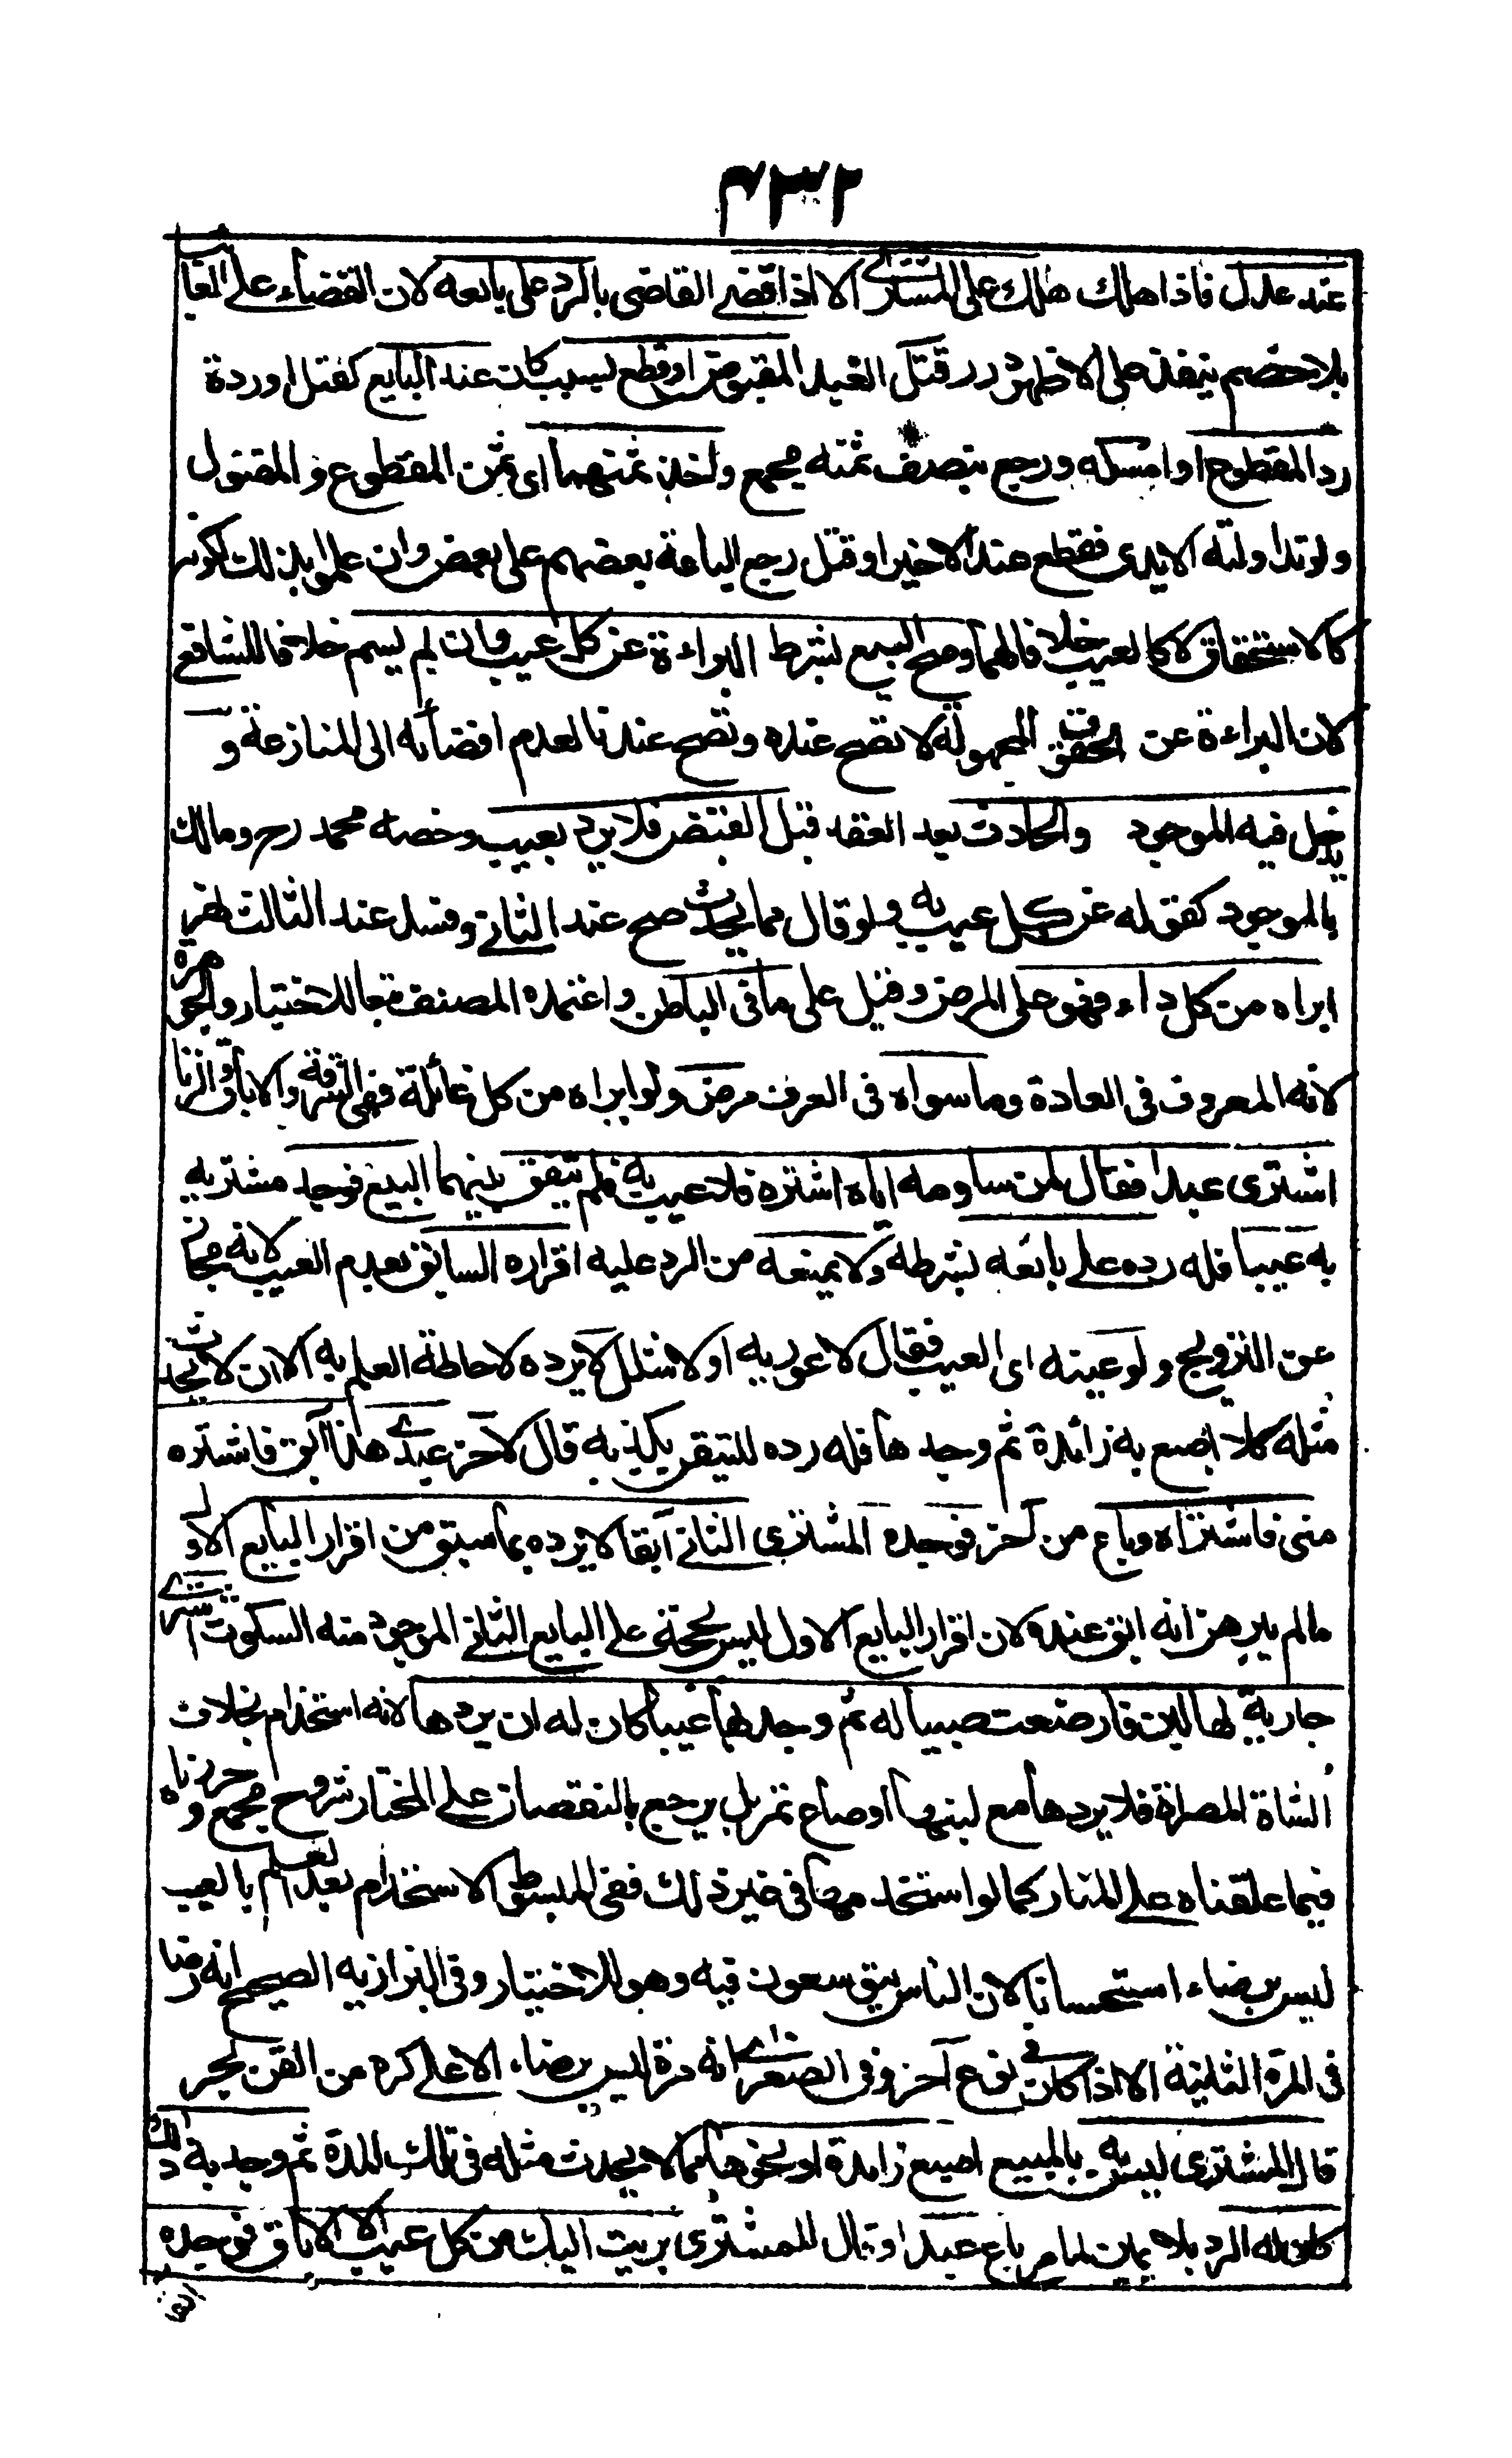 ٤٣٢
عند عدل فاذا هلك هلك على المشتري الا اذا قضى القاضى بالرد على بائعه لان القضاء على الغا
بلا خصم ينفذ على الاظهر درر قتل العبد المقبوض او قطع بسبب كان عند البايع كقتل او ردة
رد المقطوع او امسكه ورجع بنصف ثمنه مجمع واخذ ثمنهما اى ثمن المقطوع و المقتول
ولو تداولته الايدى فقطع عند الاخير او قتل رجع الباعة بعضهم على بعض وان علموا بذلك لكونه
كالاستحقاق لا كالعيب خلافا لهما وصح البيع بشرط البراءة عن كل عيب وان لم يسم خلافا للشافعى
لان البراءة عن الحقوق المجهولة لا تصح عنده وتصح عندنا لعدم افضائه الى المنازعة و
يدخل فيه الموجود والحادث بعد العقد قبل القبض فلا يرد بعيب وخصه محمد رح ومالك
بالموجود كقوله عن كل عيب به ولو قال مما يحدث صح عند الثانى وفسد عند الثالث نهر
ابراه من كل داء فهو على المرض وقيل على ما فى الباطن واعتمده المصنف تبعا للاختيار والجوهرة
لانه المعروف فى العادة وما سواه فى العرف مرض ولو ابراه من كل غائلة فهى السرقة والاباق والزنا
اشترى عبدا فقال لمن ساومه اياه اشتره فلا عيب به فلم يتفق بينهما البيع فوجد مشتريه
به عيبا فله رده على بائعه بشرطه ولا يمنعه من الرد عليه اقراره السابق بعدم العيب لانه مجاز
عن الترويج ولو عينه اى العيب فقال لا عور به او لا شلل لا يرده لاحاطة العلم به الا ان لا يحدث
مثله كلا اصبع به زائدة ثم وجدها فله رده للتيقن بكذبه قال لآخر عبدى هذا آبق فاشتره
منى فاشتراه وباع من آخر فوجده المشترى الثانى آبقا لا يرده بما سبق من اقرار البايع الاول
مالم يبرهن انه ابق عنده لان اقرار البايع الاول ليس بحجة على البايع الثانى الموجود منه السكوت اشترى
جارية لها لبن فارضعت صبيا له ثم وجد لها عيبا كان له ان يردها لانه استخدام بخلاف
الشاة المصراة فلا يردها مع لبنها او صاع تمر بل يرجع بالنقصان على المختار شروح مجمع وحررناه
فيما علقناه على المنار كما لو استخدمها فى غير ذلك ففى المبسوط الاستخدام بعد العلم بالعيب
ليس برضاء استحسانا لان الناس يتوسعون فيه وهو للاختبار وفى البزازيه الصحيح انه رضا
فى المرة الثانية الا اذا كان فى نوع آخر وفى الصغرى انه مرة ليس برضاء الا على كره من القن بحر
قال المشترى ليس به بالمبيع اصبع زايدة او نحوها مما لا يحدث مثله فى تلك المدة ثم وجد به ذلك
كان له الرد بلا يمين لما مر باع عبدا وقال للمشترى برئت اليك من كل عيب الا الاباق فوجده